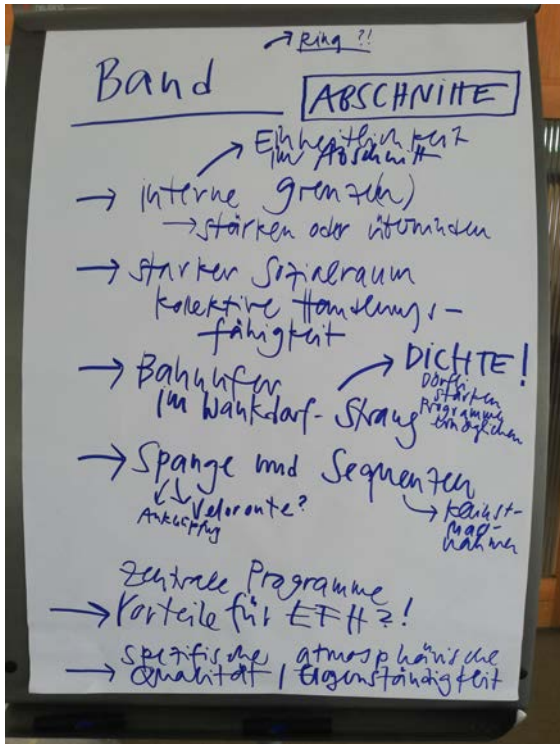 → Ring ?!
Band
ABSCHNITTE
Einheitlichkeit
im Abschnitt
→ interne Grenze(n)
→ stärken oder überwinden
→ starker Sozialraum
kolektive Handlungs-
fähigkeit
→ Bahnufer → DICHTE!
im Wankdorf-Strang
Dörfli
stärken
Programme
ermöglichen
→ Spange und Sequenzen
Anknüpfung Veloroute?
→ kleinst-
maß-
nahmen
zentrale Programme
→ Vorteile für EFH?!
spezifische atmosphärische
→ Qualität / Eigenständigkeit